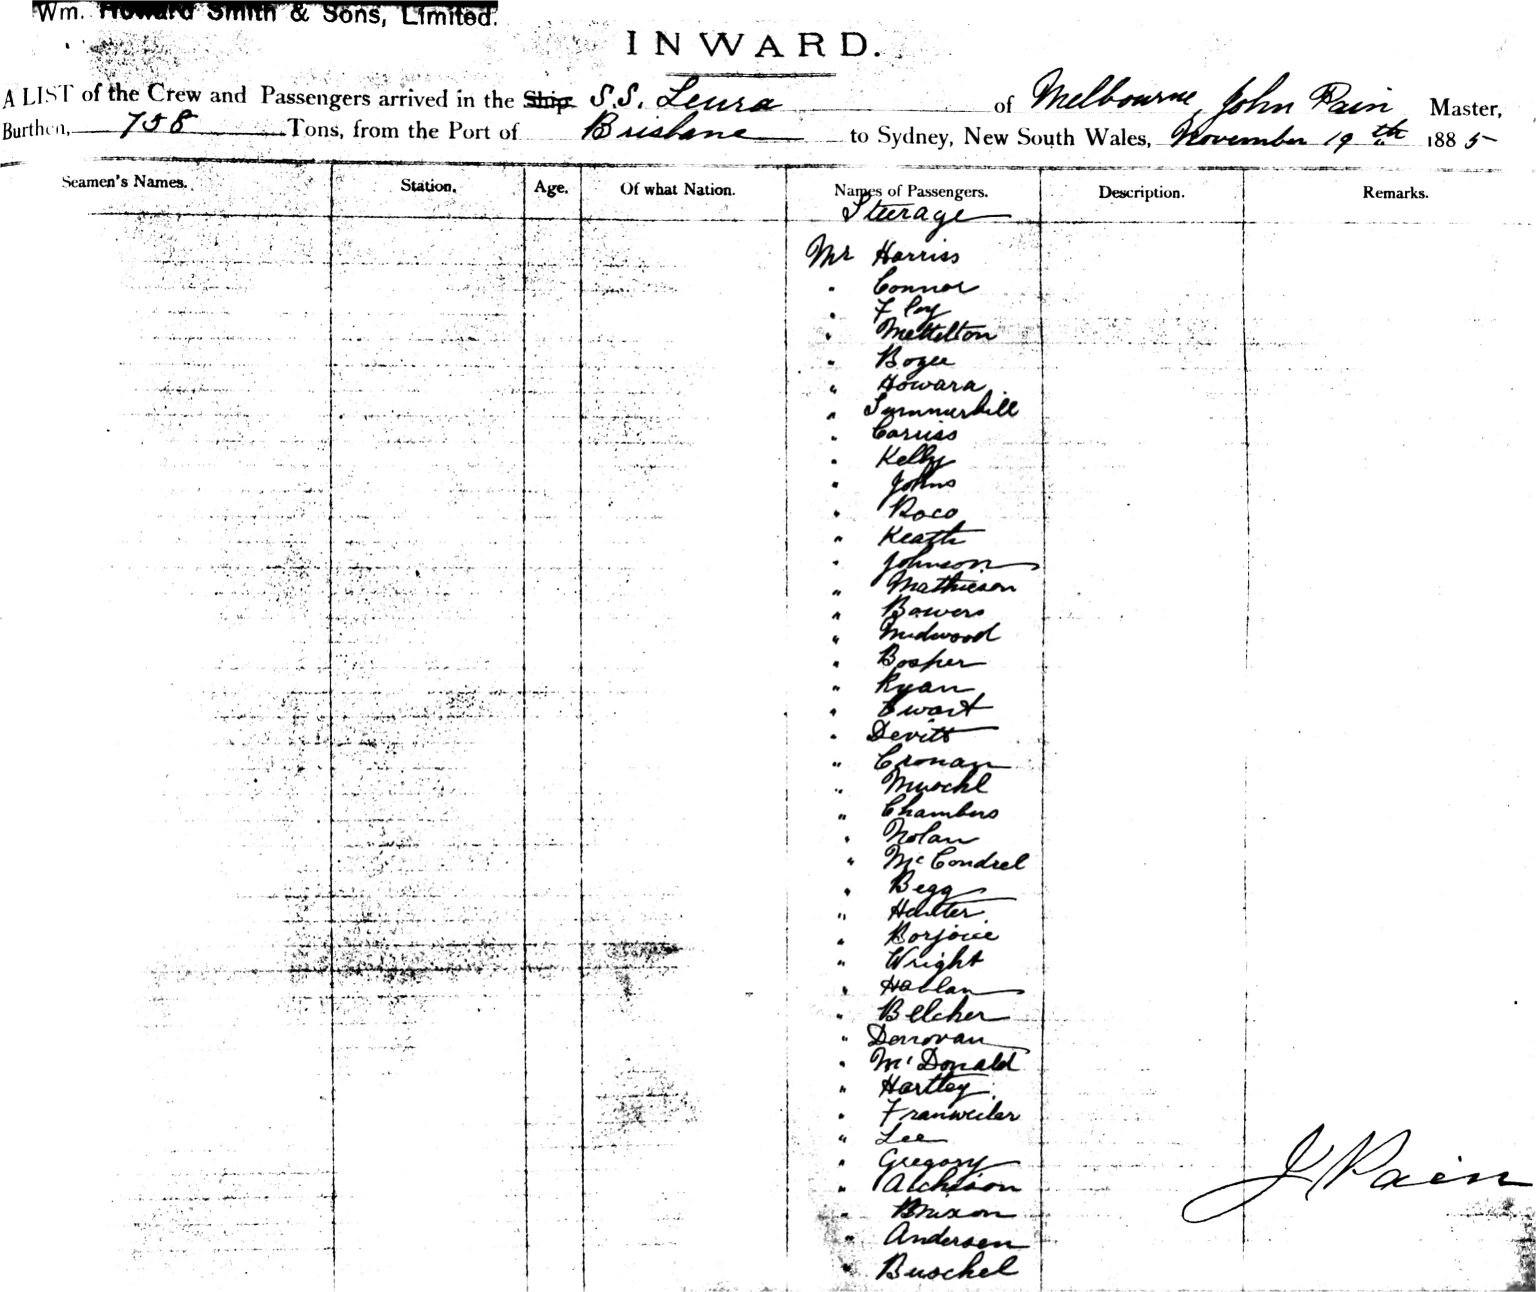 Wm. Howard Smith & Sons, Limited.
INWARD.
A LIST of the Crew and Passengers arrived in the Ship S.S. Leura of Melbourne, John Pain Master,
Burthen, 758 Tons, from the Port of Brisbane to Sydney, New South Wales, November 19th 1885
Seamen's Names. Station. Age. Of what Nation. Names of Passengers. Description. Remarks.
Steerage
Mr Harriss
" Connor
" Floy
" Mettelton
" Bogee
" Howard
" Summerhill
" Carriss
" Kelly
" Johns
" Roco
" Keath
" Johnson
" Mathieson
" Bowers
" Midwood
" Bosher
" Ryan
" Ewart
" Devitt
" Cronan
" Muschl
" Chambers
" Nolan
" McCondrel
" Begg
" Hunter
" Borjoice
" Wright
" Hallan
" Belcher
" Donovan
" McDonald
" Hartley
" Franweiler
" Lee
" Gregory
" Aicheson
J Pain
" Brixon
" Andersen
" Buschel